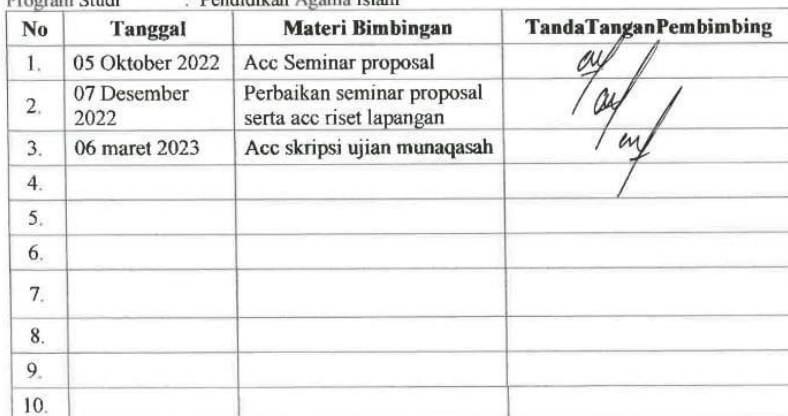 Program Studi : Pendidikan Agama Islam
No Tanggal Materi Bimbingan TandaTanganPembimbing
1. 05 Oktober 2022 Acc Seminar proposal
2. 07 Desember 2022 Perbaikan seminar proposal serta acc riset lapangan
3. 06 maret 2023 Acc skripsi ujian munaqasah
4.
5.
6.
7.
8.
9.
10.